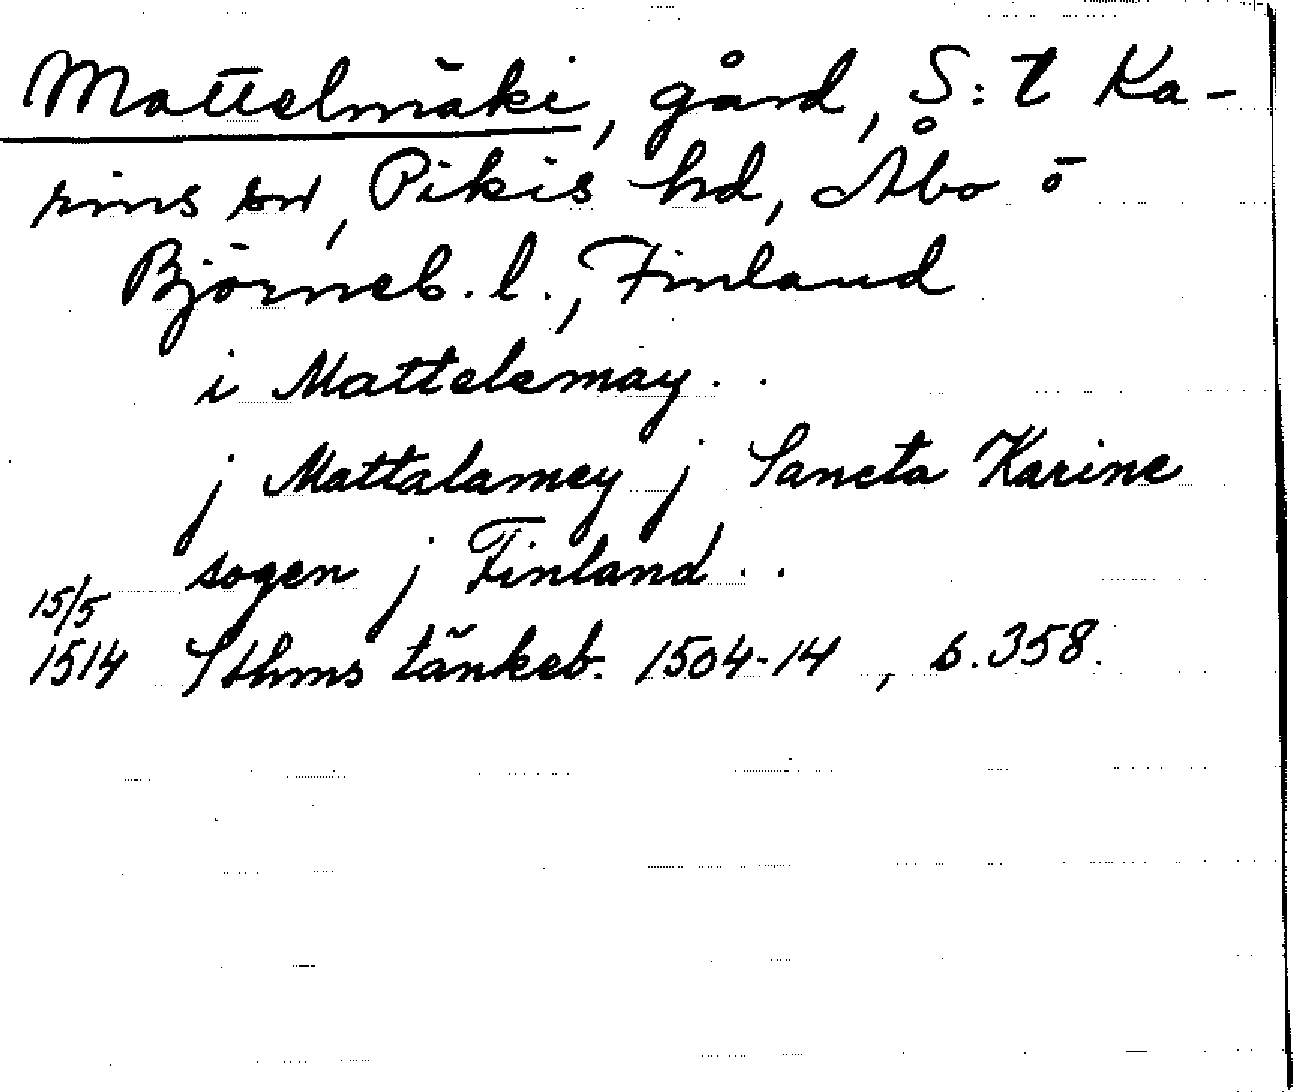 Mattelmäki, gård, S:t Ka-
rins sn, Pikis hd, Åbo o
Björneb. l., Finland
i Mattelemay . .
j Mattalamey j Sancta Karine
sogen j Finland . .
15/5
1514 Sthms tänkeb. 1504-14, s. 358.